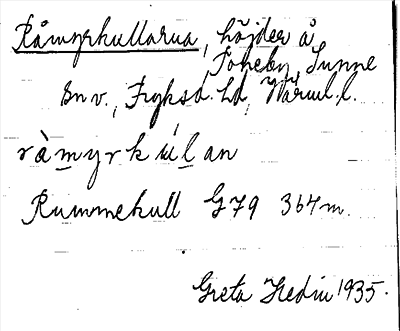 Råmyrkullarna, höjder å
Toneby, Sunne
sn v., Fryksd. hd, Värml. l.
ràmyrkúlan
Rummekull G79 364 m.
Greta Hedin 1935.